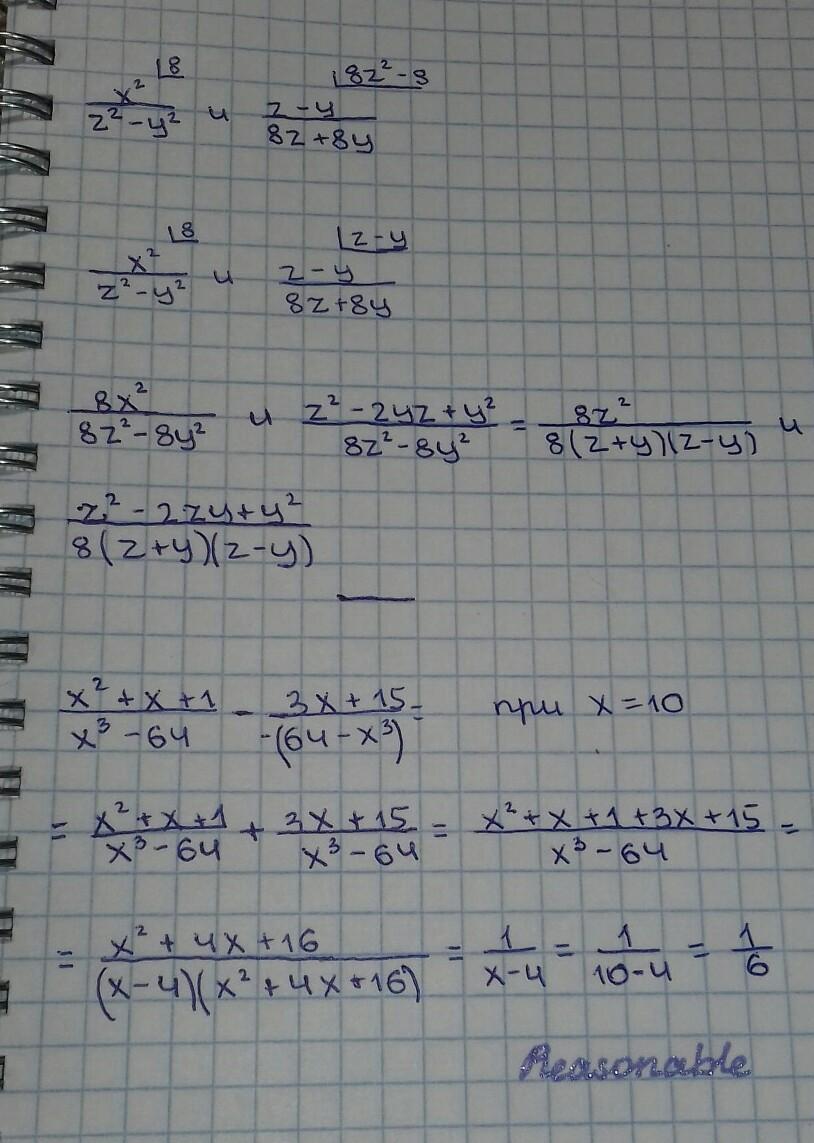 x²/(z²-y²) ⌊8 и (z-y)/(8z+8y) ⌊8z²-8
x²/(z²-y²) ⌊8 и (z-y)/(8z+8y) ⌊z-y
8x²/(8z²-8y²) и (z²-2yz+y²)/(8z²-8y²) = 8z²/(8(z+y)(z-y)) и
(z²-2zy+y²)/(8(z+y)(z-y))
(x²+x+1)/(x³-64) - (3x+15)/(-(64-x³)) = при x=10
= (x²+x+1)/(x³-64) + (3x+15)/(x³-64) = (x²+x+1+3x+15)/(x³-64) =
= (x²+4x+16)/((x-4)(x²+4x+16)) = 1/(x-4) = 1/(10-4) = 1/6
Reasonable